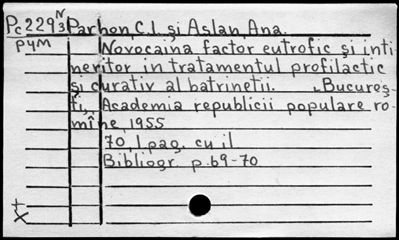 Pc2293N Parhon, C.I. și Aslan, Ana.
рум
Novocaina factor eutrofic și inti
neritor in tratamentul profilactic
și curativ al batrinetii. București, Academia republicii populare ro-
mîne, 1955
70, 1 pag. cu il
Bibliogr. p. 69-70
+
X